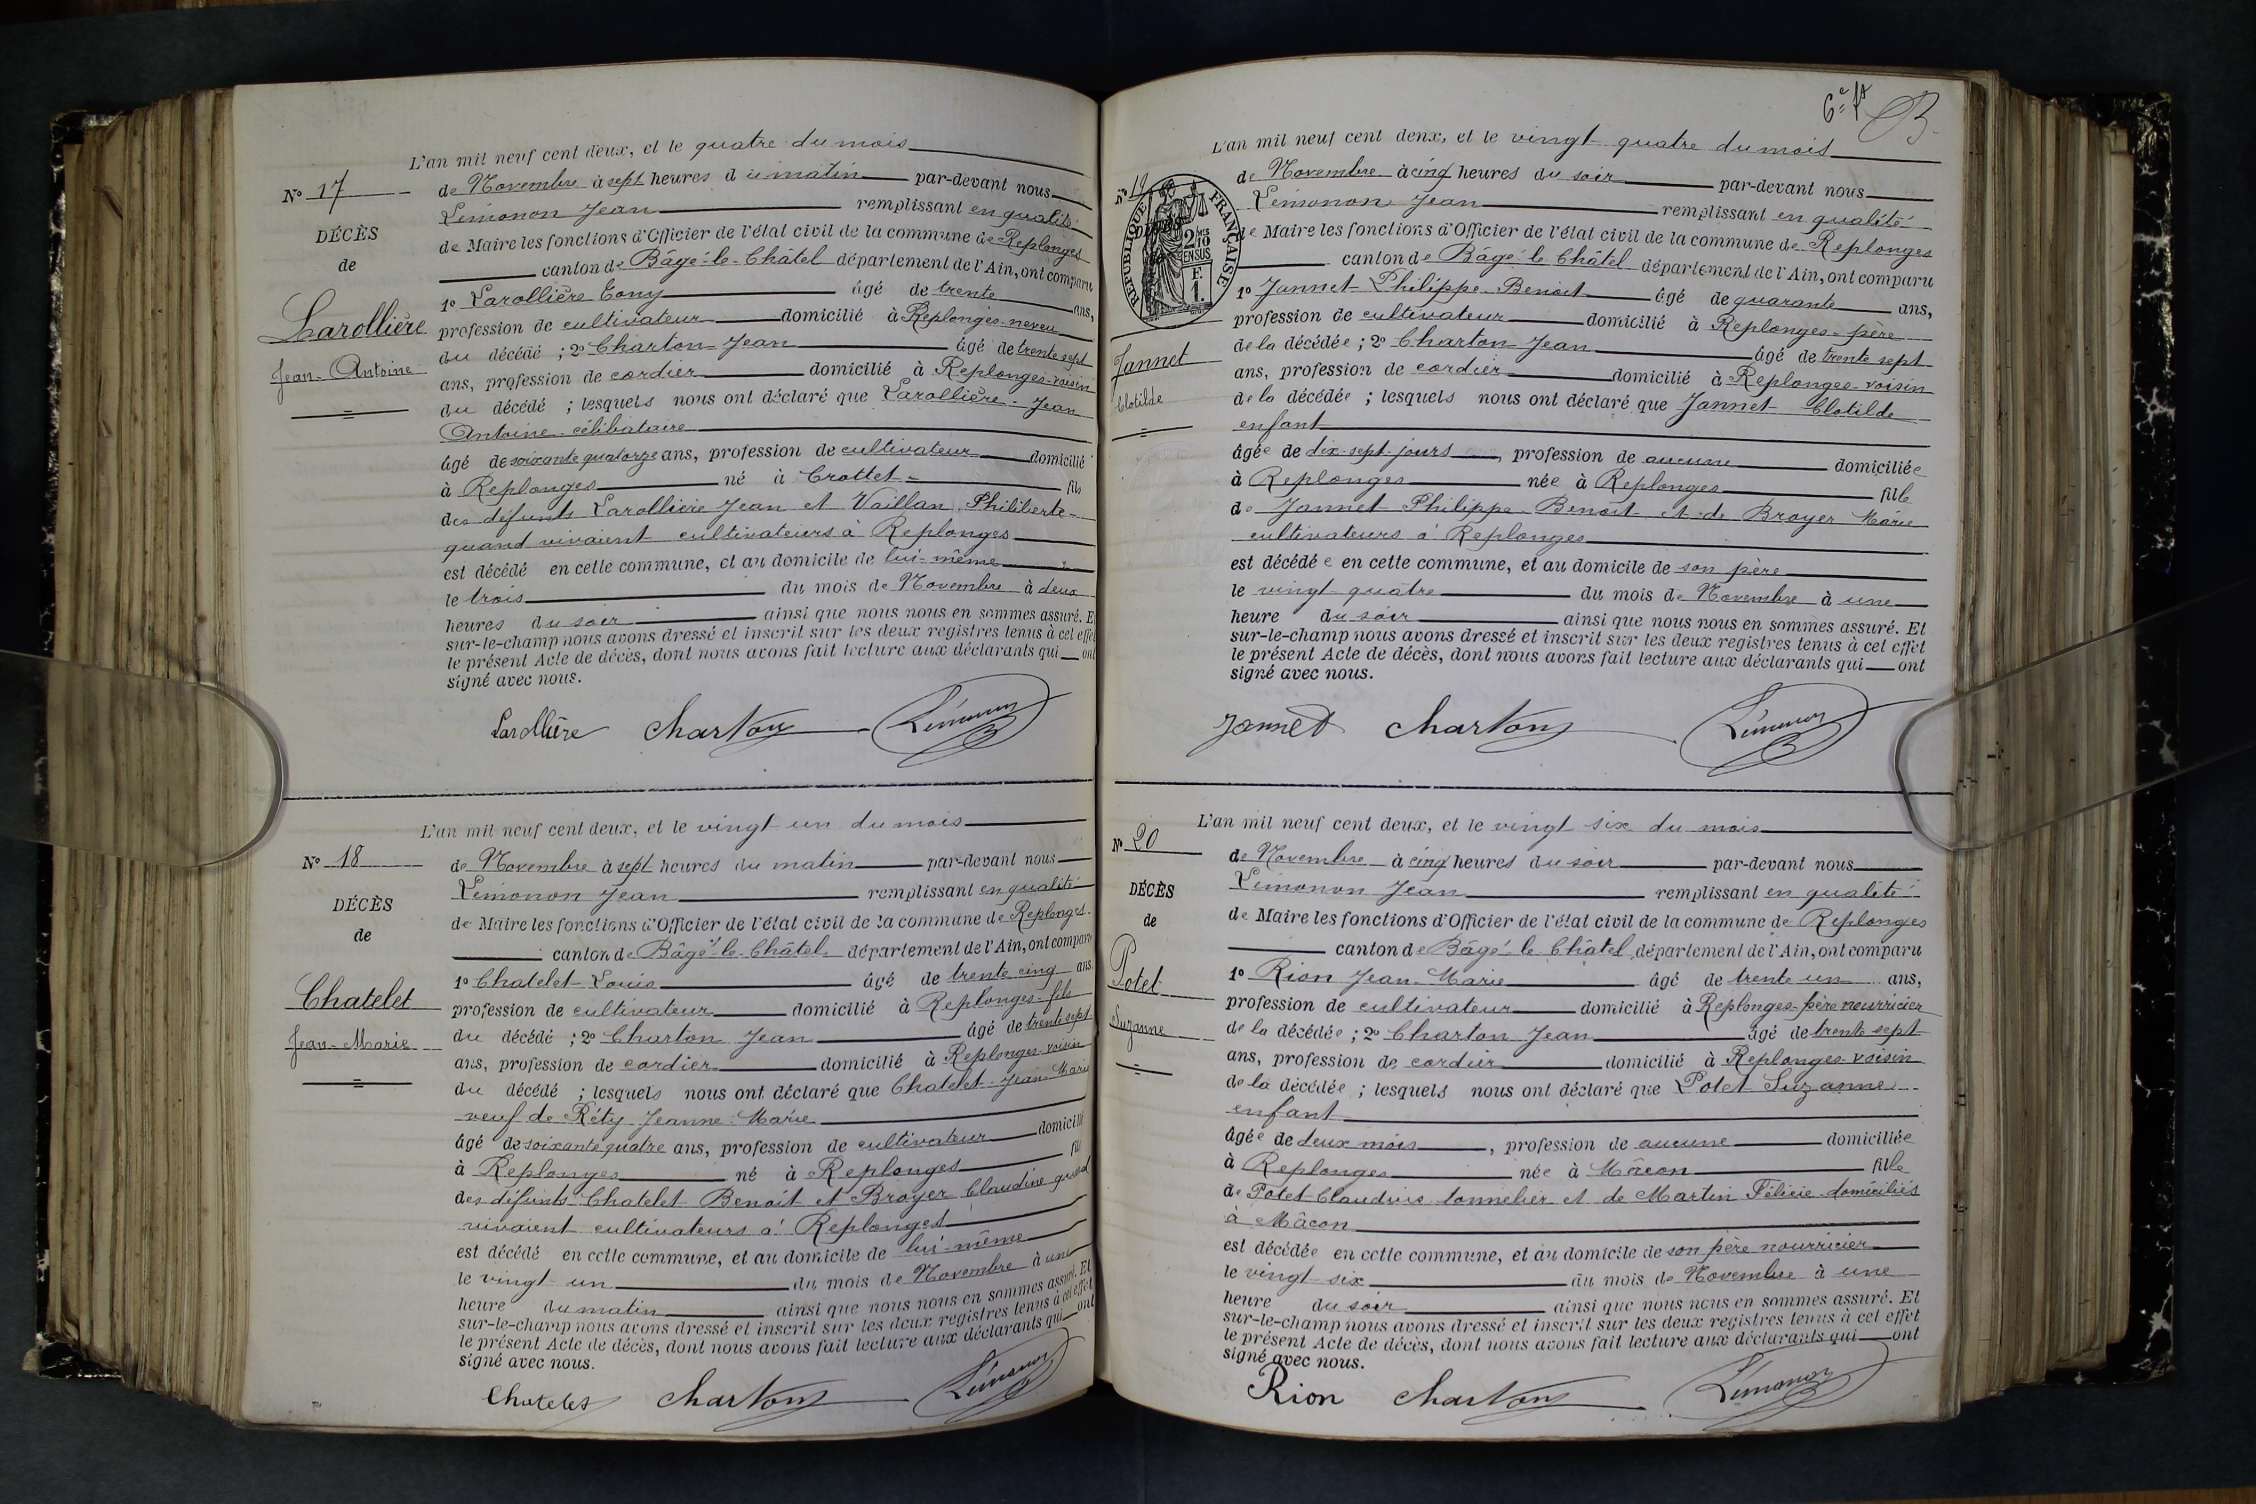 L'an mil neuf cent deux, et le quatre du mois
No 17
de Novembre à sept heures du matin par-devant nous
Lémonon Jean remplissant en qualité
DÉCÈS
de Maire les fonctions d'Officier de l'état civil de la commune de Replonges
de
canton de Bâgé-le-Châtel département de l'Ain, ont comparu
1o Larollière Tony âgé de trente ans,
Larollière
profession de cultivateur domicilié à Replonges-neveu
du décédé ; 2o Charton Jean âgé de trente sept
Jean-Antoine
ans, profession de cordier domicilié à Replonges-voisin
du décédé ; lesquels nous ont déclaré que Larollière Jean
Antoine célibataire
âgé de soixante quatorze ans, profession de cultivateur domicilié
à Replonges né à Crottet fils
des défunts Larollière Jean et Vaillan Philiberte
quand vivaient cultivateurs à Replonges
est décédé en cette commune, et au domicile de lui-même
le trois du mois de Novembre à deux
heures du soir ainsi que nous nous en sommes assuré. Et
sur-le-champ nous avons dressé et inscrit sur les deux registres tenus à cet effet
le présent Acte de décès, dont nous avons fait lecture aux déclarants qui ont
signé avec nous.
Larollière Charton Lémonon
L'an mil neuf cent deux, et le vingt un du mois
No 18
de Novembre à sept heures du matin par-devant nous
Lémonon Jean remplissant en qualité
DÉCÈS
de Maire les fonctions d'Officier de l'état civil de la commune de Replonges
de
canton de Bâgé-le-Châtel département de l'Ain, ont comparu
1o Chatelet Louis âgé de trente cinq ans
Chatelet
profession de cultivateur domicilié à Replonges-fils
du décédé ; 2o Charton Jean âgé de trente sept
Jean-Marie
ans, profession de cordier domicilié à Replonges-voisin
du décédé ; lesquels nous ont déclaré que Chatelet Jean-Marie
veuf de Réty Jeanne-Marie
âgé de soixante quatre ans, profession de cultivateur domicilié
à Replonges né à Replonges fils
des défunts Chatelet Benoit et Broyer Claudine quand
vivaient cultivateurs à Replonges
est décédé en cette commune, et au domicile de lui-même
le vingt un du mois de Novembre à une
heure du matin ainsi que nous nous en sommes assuré. Et
sur-le-champ nous avons dressé et inscrit sur les deux registres tenus à cet effet
le présent Acte de décès, dont nous avons fait lecture aux déclarants qui ont
signé avec nous.
Chatelet Charton Lémonon
L'an mil neuf cent deux, et le vingt quatre du mois
No 19
de Novembre à cinq heures du soir par-devant nous
Lémonon Jean remplissant en qualité
RÉPUBLIQUE FRANÇAISE
2/10 EN SUS
F. 1.
de Maire les fonctions d'Officier de l'état civil de la commune de Replonges
canton de Bâgé le Châtel département de l'Ain, ont comparu
1o Jannet Philippe-Benoit âgé de quarante ans,
profession de cultivateur domicilié à Replonges-père
Jannet
de la décédée ; 2o Charton Jean âgé de trente sept
Clotilde
ans, profession de cordier domicilié à Replonges-voisin
de la décédée ; lesquels nous ont déclaré que Jannet Clotilde
enfant
âgée de dix-sept jours, profession de aucune domiciliée
à Replonges née à Replonges fille
de Jannet Philippe-Benoit et de Broyer Marie
cultivateurs à Replonges
est décédée en cette commune, et au domicile de son père
le vingt quatre du mois de Novembre à une
heure du soir ainsi que nous nous en sommes assuré. Et
sur-le-champ nous avons dressé et inscrit sur les deux registres tenus à cet effet
le présent Acte de décès, dont nous avons fait lecture aux déclarants qui ont
signé avec nous.
Jannet Charton Lémonon
L'an mil neuf cent deux, et le vingt six du mois
No 20
de Novembre à cinq heures du soir par-devant nous
Lémonon Jean remplissant en qualité
DÉCÈS
de Maire les fonctions d'Officier de l'état civil de la commune de Replonges
de
canton de Bâgé le Châtel département de l'Ain, ont comparu
Potet
1o Rion Jean-Marie âgé de trente un ans,
profession de cultivateur domicilié à Replonges-père nourricier
Suzanne
de la décédée ; 2o Charton Jean âgé de trente sept
ans, profession de cordier domicilié à Replonges-voisin
de la décédée ; lesquels nous ont déclaré que Potet Suzanne
enfant
âgée de deux mois, profession de aucune domiciliée
à Replonges née à Mâcon fille
de Potet Claudius tonnelier et de Martin Félicie domiciliés
à Mâcon
est décédée en cette commune, et au domicile de son père nourricier
le vingt six du mois de Novembre à une
heure du soir ainsi que nous nous en sommes assuré. Et
sur-le-champ nous avons dressé et inscrit sur les deux registres tenus à cet effet
le présent Acte de décès, dont nous avons fait lecture aux déclarants qui ont
signé avec nous.
Rion Charton Lémonon